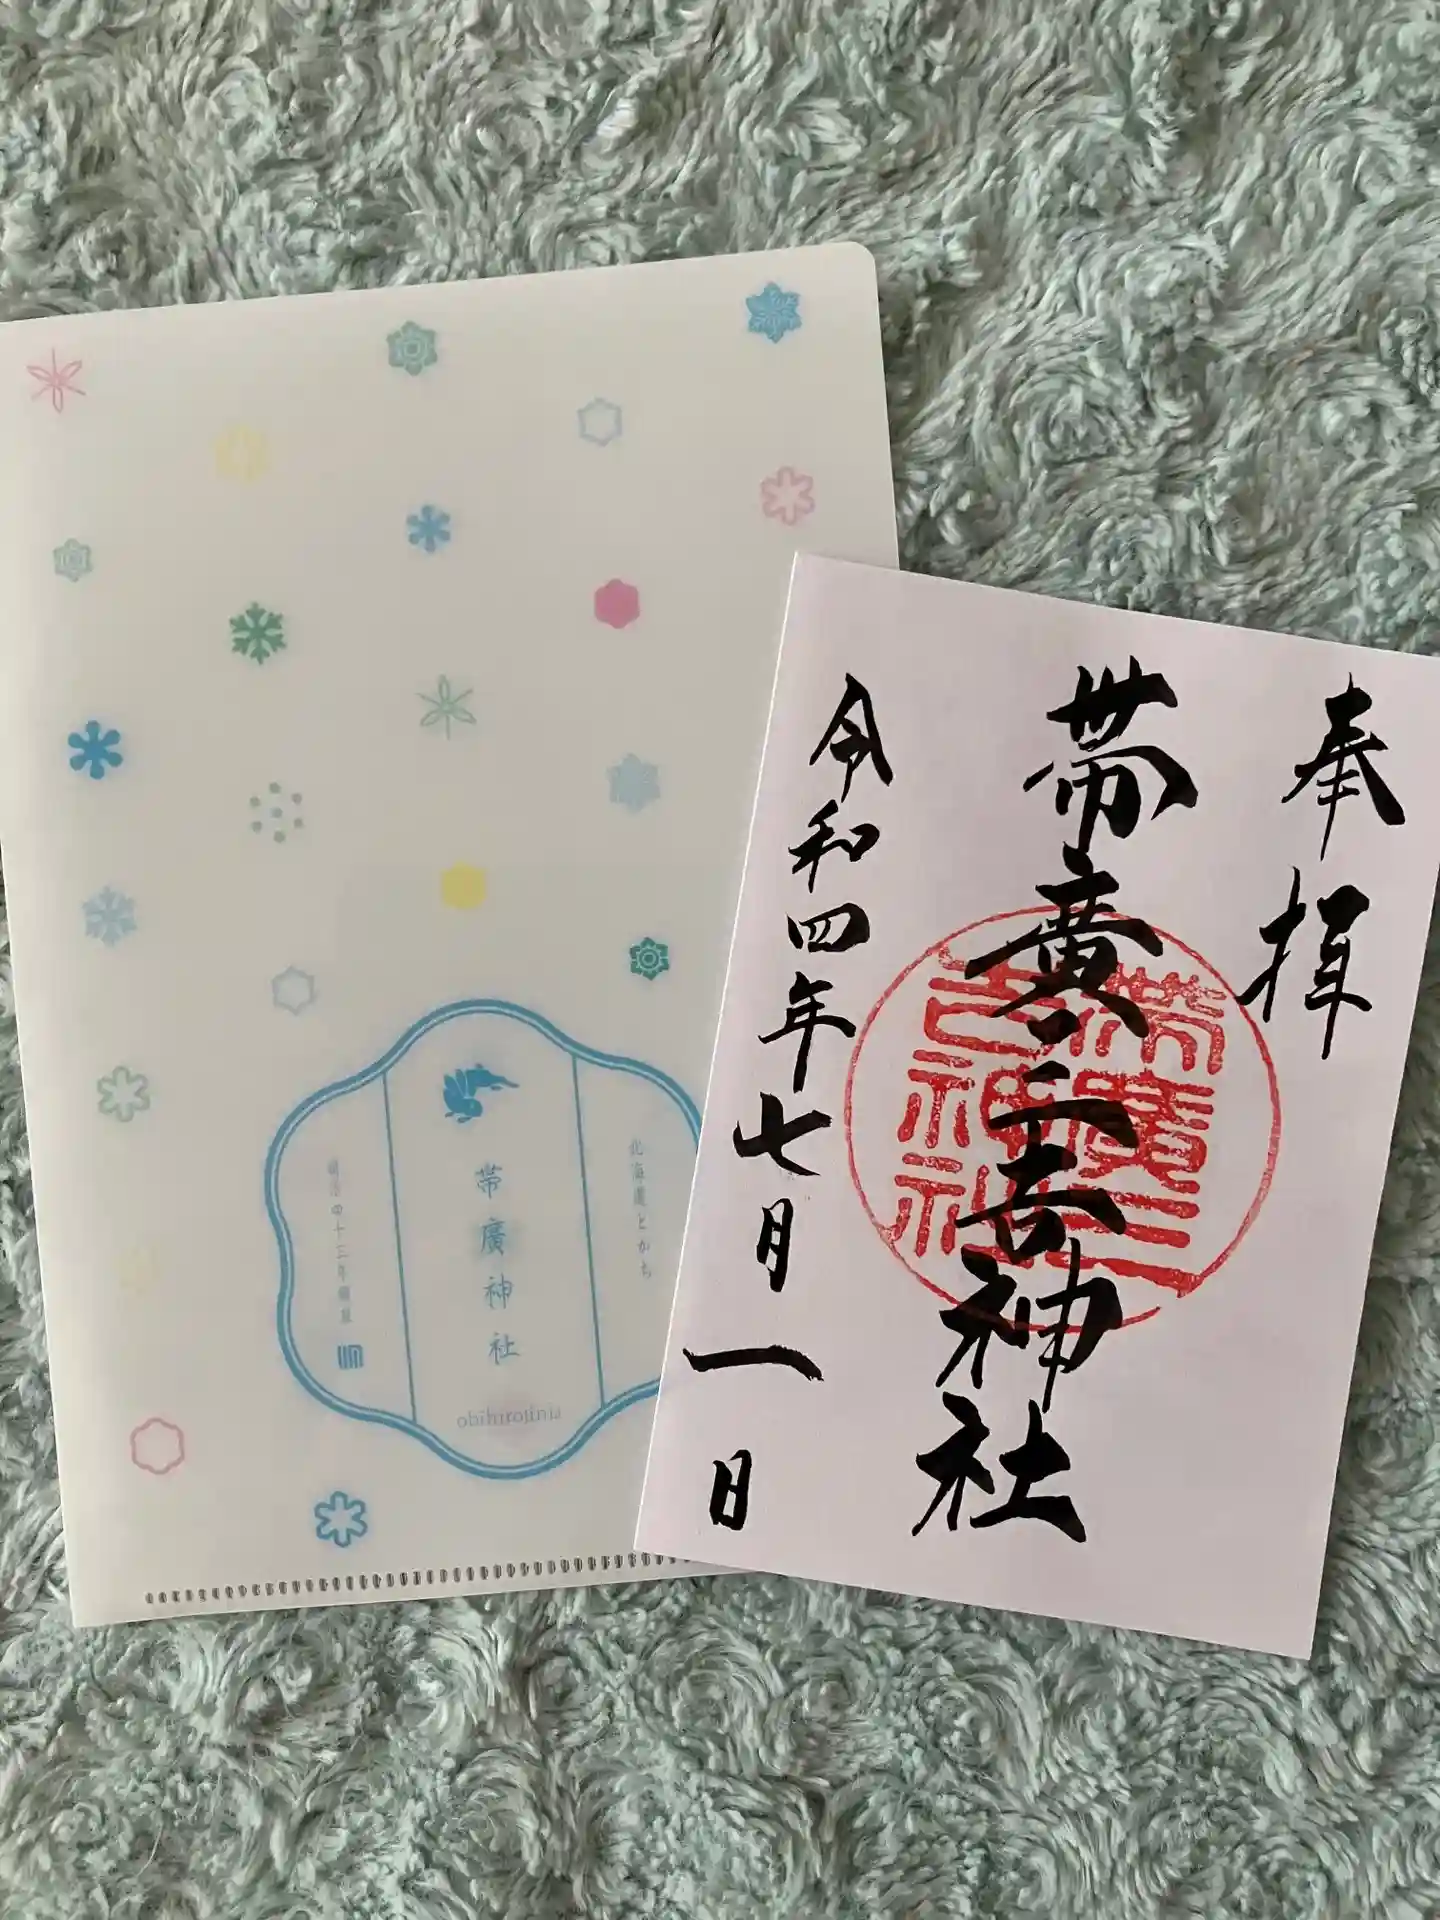 北海道とかち
帯廣神社
obihirojinja
明治四十三年鎮座
奉拝
帯廣三吉神社
令和四年七月一日